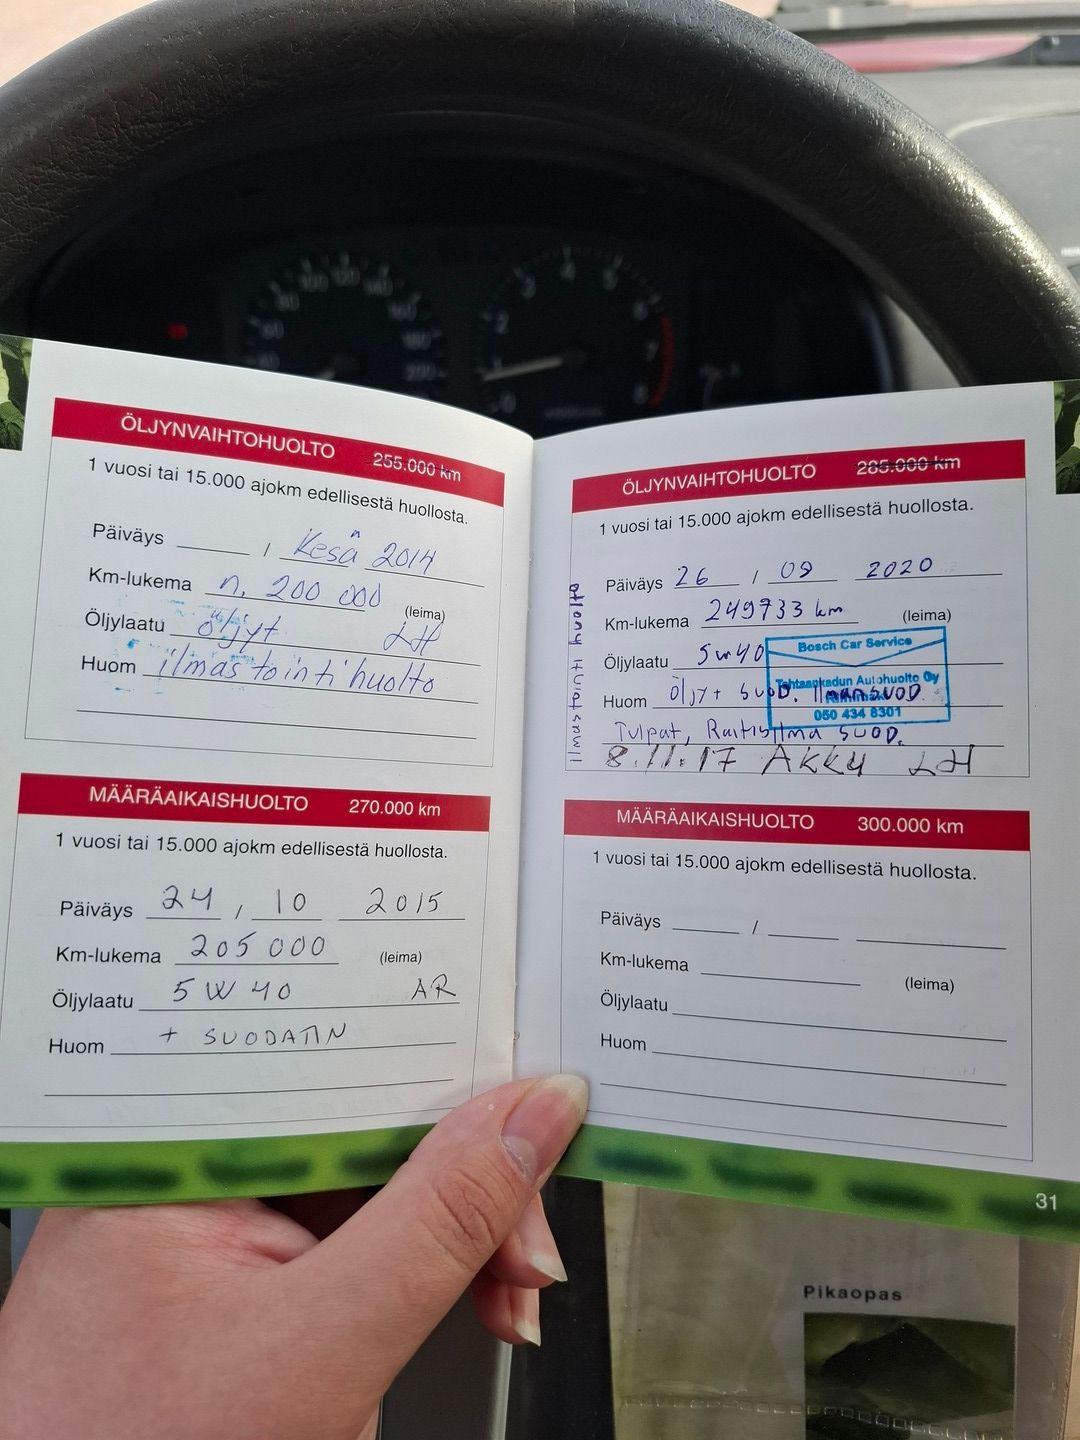 ÖLJYNVAIHTOHUOLTO 255.000 km
1 vuosi tai 15.000 ajokm edellisestä huollosta.
Päiväys / Kesä 2014
Km-lukema n. 200 000
(leima)
Öljylaatu öljyt LH
Huom ilmastointi huolto
MÄÄRÄAIKAISHUOLTO 270.000 km
1 vuosi tai 15.000 ajokm edellisestä huollosta.
Päiväys 24 / 10 2015
Km-lukema 205 000 (leima)
Öljylaatu 5W40 AR
Huom + SUODATIN
ÖLJYNVAIHTOHUOLTO 285.000 km
1 vuosi tai 15.000 ajokm edellisestä huollosta.
Päiväys 26 / 09 2020
Km-lukema 249733 km (leima)
Öljylaatu 5w40
Huom Öljy + SUOD. IlmanSUOD
Tulpat, Raitisilma SUOD.
8.11.17 AKKU LH
Ilmastointi huolto
Bosch Car Service
Tehtaankadun Autohuolto Oy
050 434 8301
MÄÄRÄAIKAISHUOLTO 300.000 km
1 vuosi tai 15.000 ajokm edellisestä huollosta.
Päiväys /
Km-lukema
(leima)
Öljylaatu
Huom
31
Pikaopas
60
80
100
120
140
160
180
200
0
1
2
3
4
5
6
7
8